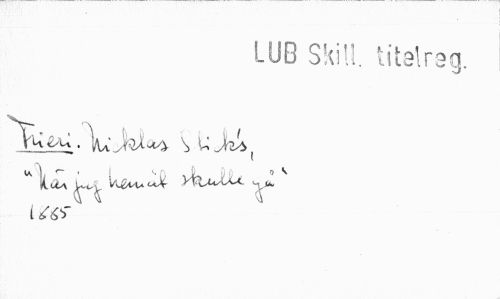 LUB Skill. titelreg.
Frieri. Nicklas Stick's,
"När jag hemåt skulle gå"
1665